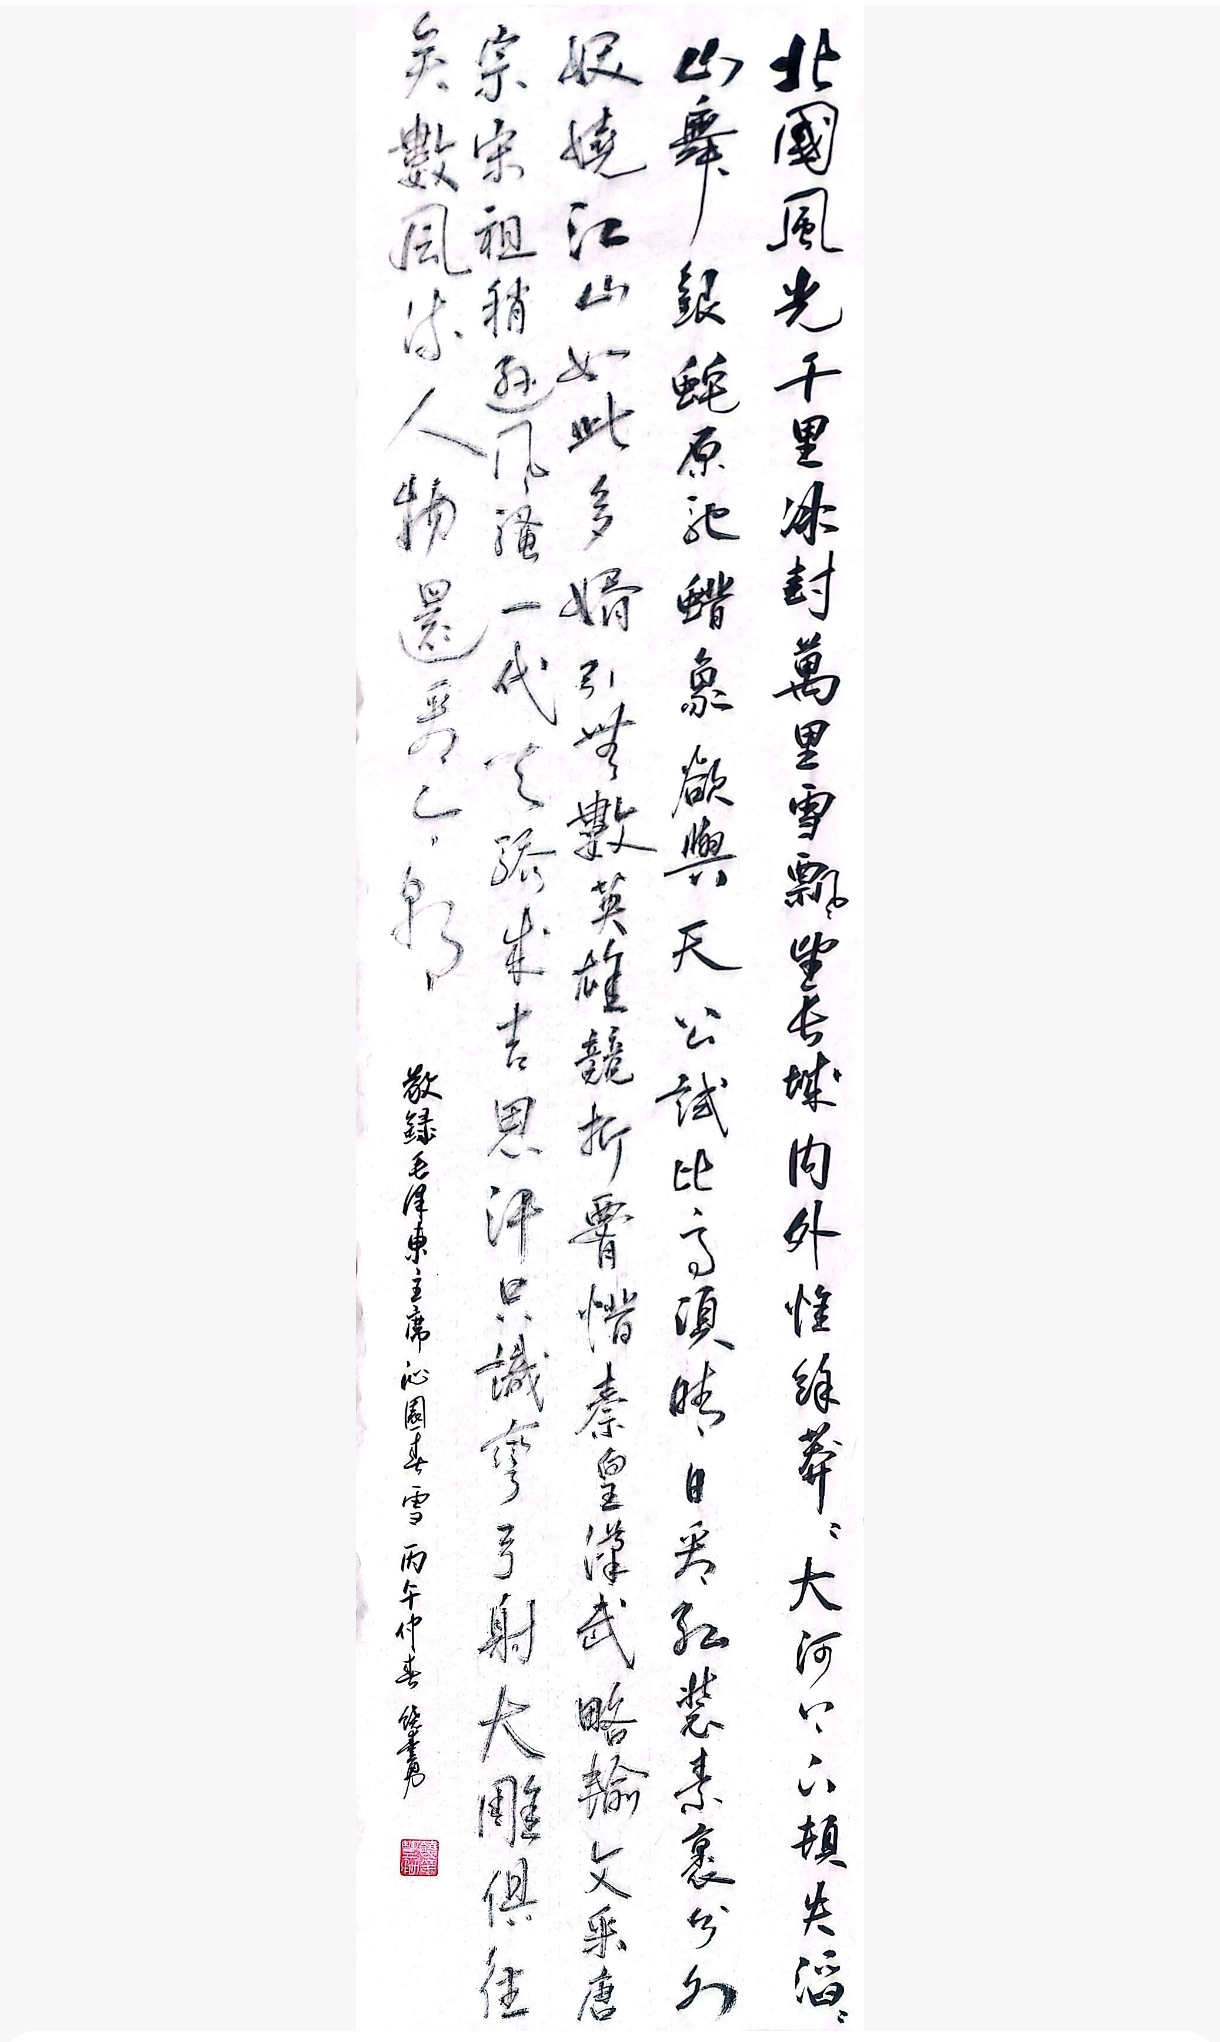 北國風光千里冰封萬里雪飄望長城内外惟餘莽〻大河上下頓失滔〻
山舞銀蛇原馳蜡象欲與天公試比高須晴日看紅裝素裹分外
妖嬈江山如此多嬌引無數英雄競折腰惜秦皇漢武略輸文采唐
宗宋祖稍遜風騷一代天驕成吉思汗只識彎弓射大雕俱往
矣數風流人物還看今朝
敬録毛澤東主席沁園春雪 丙午仲春